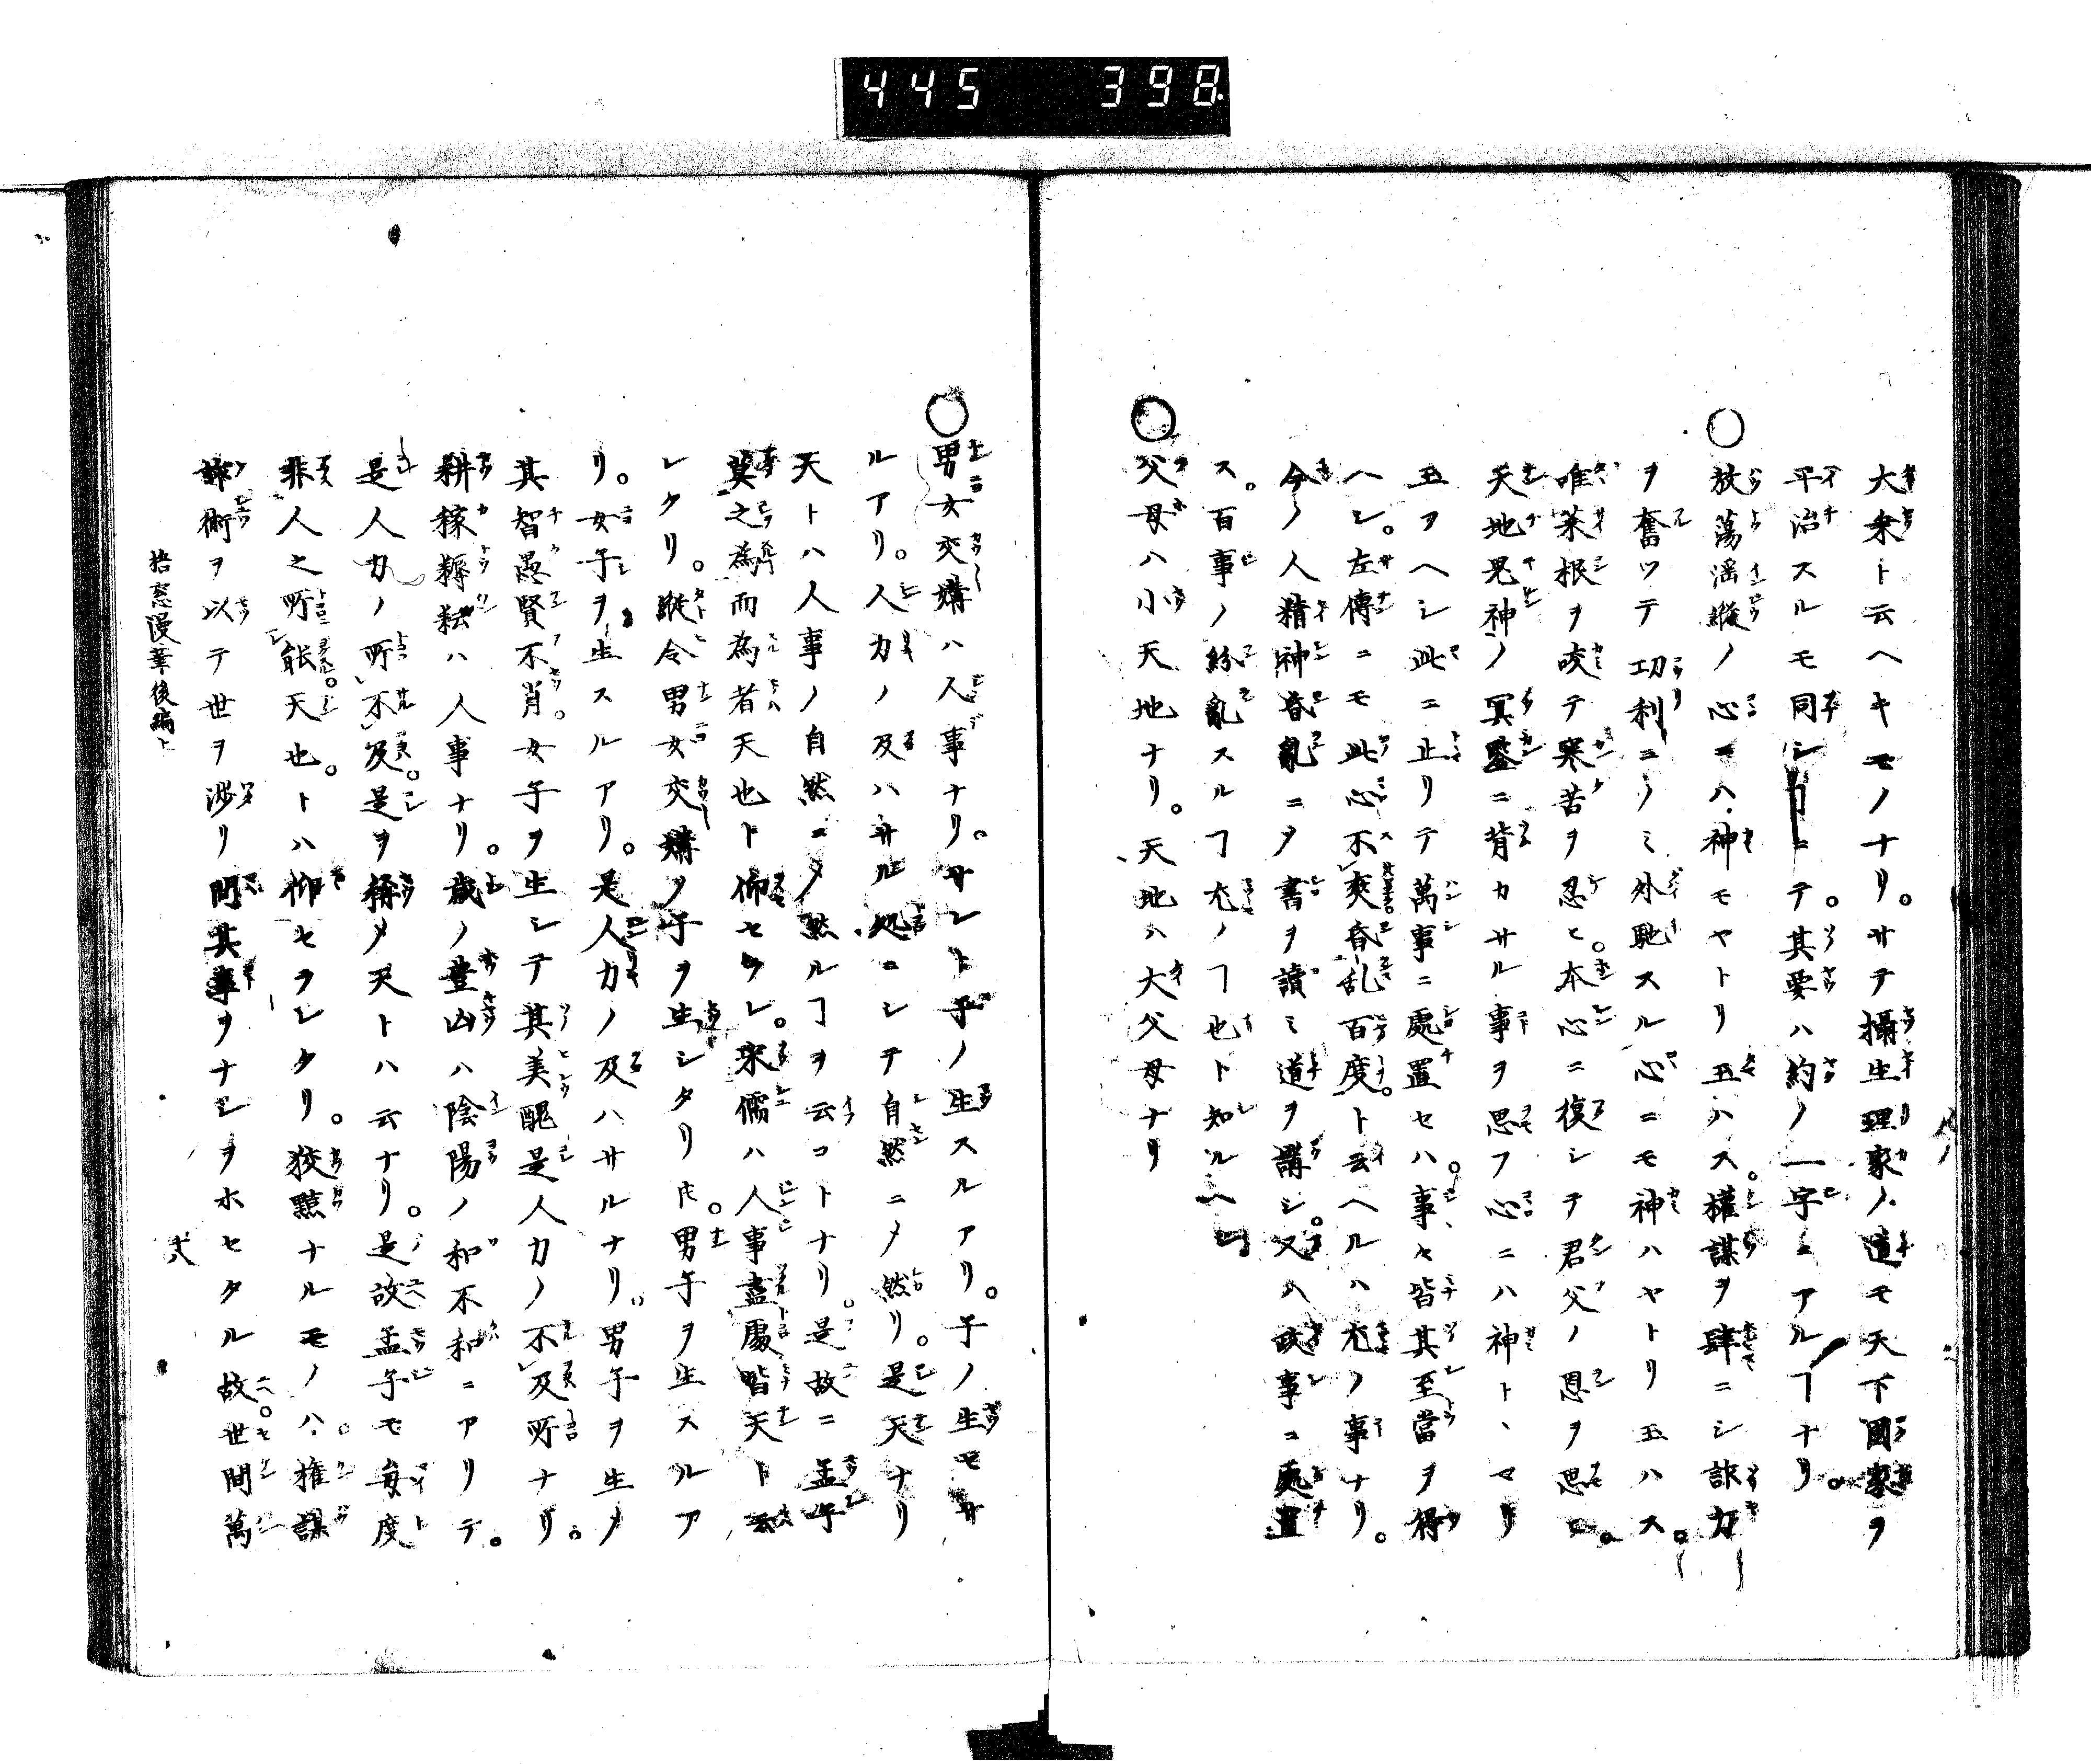 445 398
大乗ト云ヘキモノナリ。サテ攝生理家ノ道モ天下國家ヲ
平治スルモ同シヿニテ。其要ハ約ノ一字ニアルヿナリ。
○放蕩淫縦ノ心ニハ神モヤトリ玉ハス。權謀ヲ肆ニシ詐力
ヲ奮ツテ功利ニノミ外馳スル心ニモ神ハヤトリ玉ハス。
唯菜根ヲ咬テ寒苦ヲ忍ヒ。本心ニ復シテ君父ノ恩ヲ思ヒ。
天地鬼神ノ冥鑒ニ背カサル事ヲ思フ心ニハ神トヽマリ
玉フヘシ此ニ止リテ萬事ニ處置セハ。事々皆其至當ヲ得
ヘシ。左傳ニモ此心不爽昏乱百度。ト云ヘルハ尤ノ事ナリ。
今ノ人精神昏亂ニメ書ヲ讀ミ道ヲ講シ。又ハ政事ニ處置
ス。百事ノ紛亂スルヿ尤ノヿ也ト知ルヘシ
○父母ハ小天地ナリ。天地ハ大父母ナリ
○男女交媾ハ人事ナリ。サレト子ノ生スルアリ。子ノ生セサ
ルアリ。人力ノ及ハサル処ニシテ自然ニメ然リ。是天ナリ
天トハ人事ノ自然ニメ然ルヿヲ云コトナリ。是故ニ孟子
莫之為而為者天也ト仰セラレ。宋儒ハ人事盡處皆天ト云
レタリ。縦令男女交媾メ子ヲ生シタリ𪜈。男子ヲ生スルア
リ。女子ヲ生スルアリ。是人力ノ及ハサルナリ。男子ヲ生メ
其智愚賢不肖。女子ヲ生シテ其美醜是人力ノ不及所ナリ。
耕稼耨耘ハ人事ナリ。歳ノ豊凶ハ陰陽ノ和不和ニアリテ。
是人力ノ所不及。是ヲ稱メ天トハ云ナリ。是故孟子モ毎度
非人之所能天也。トハ仰セラレタリ。狡黠ナルモノハ。權謀
詐術ヲ以テ世ヲ渉リ間其事ヲナシヲホセタル故ニ。世間萬
梧窓漫筆後編上
十八